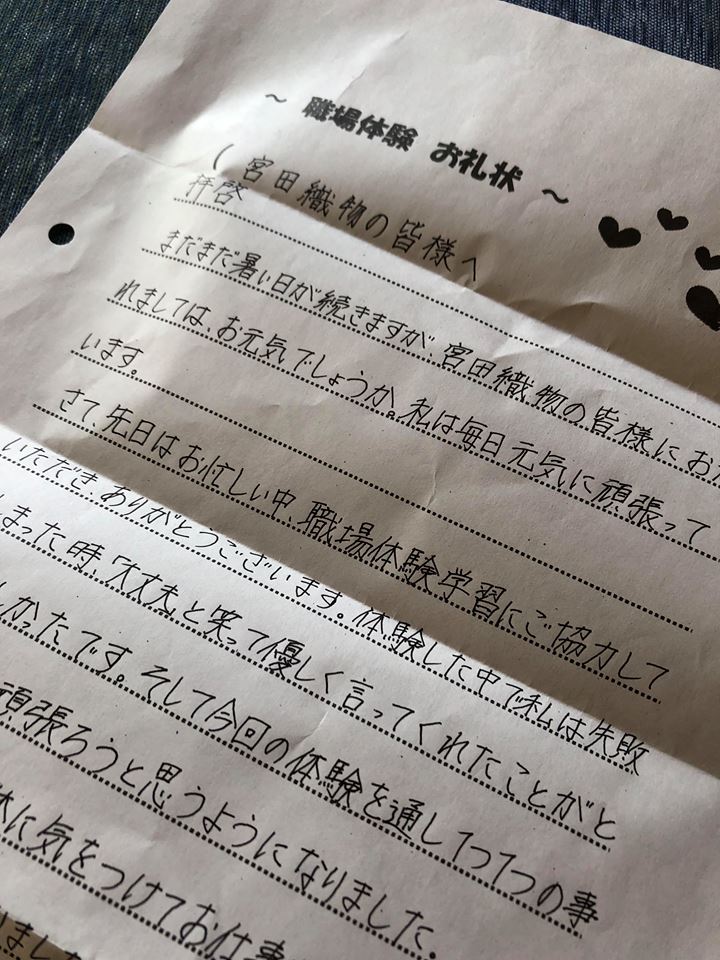 ～ 職場体験 お礼状 ～
( 宮田織物の皆様へ
拝啓
まだまだ暑い日が続きますが、宮田織物の皆様にお
れましては、お元気でしょうか。私は毎日元気に頑張って
います。
さて、先日はお忙しい中、職場体験学習にご協力して
いただき、ありがとうございます。体験した中で私は失敗
まった時、「大丈夫」と笑って優しく言ってくれたことがと
しかったです。そして今回の体験を通し1つ1つの事
頑張ろうと思うようになりました。
に気をつけてお仕事
ました